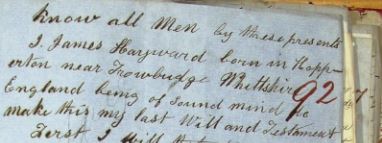 Know all Men by these presents
I. James Hayward born in Hopp-
erton near Trowbudge Whittshire
England being of Sound mind do
make this my last Will and Testament
First I Will that
92